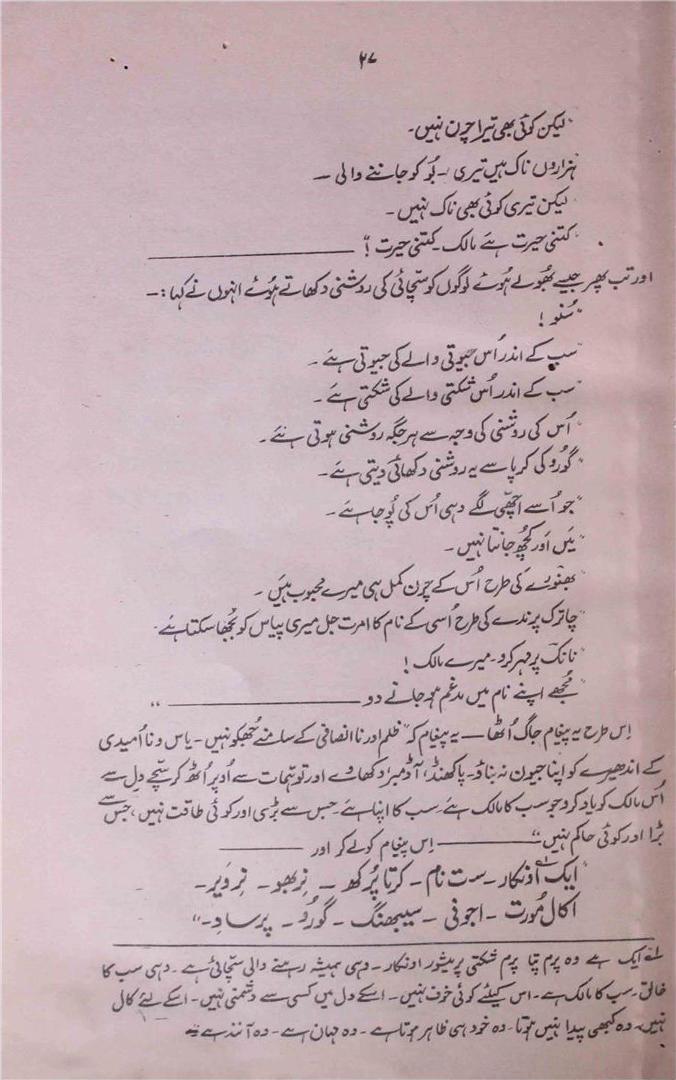 ۲۷
"لیکن کوئی بھی تیرا چرن نہیں۔
"ہزاروں ناک ہیں تیری ۔ بُو کو جاننے والی —
"لیکن تیری کوئی بھی ناک نہیں۔
"کتنی حیرت ہے مالک ۔ کتنی حیرت!"
اور تب پھر جیسے بھُولے ہُوئے لوگوں کو سچّائی کی روشنی دکھاتے ہُوئے انہوں نے کہا:—
"سُنو!
"سب کے اندر اُس جیوتی والے کی جیوتی ہے۔
"سب کے اندر اُس شکتی والے کی شکتی ہے۔
"اُس کی روشنی کی وجہ سے ہر جگہ روشنی ہوتی ہے۔
"گورُو کی کرپا سے یہ روشنی دکھائی دیتی ہے۔
"جو اُسے اچھّی لگے وہی اُس کی پُوجا ہے۔
"میَں اَور کچُھ جانتا نہیں۔
"بھنورے کی طرح اُس کے چرن کمل ہی میرے محبوب ہیں۔
"چاترک پرندے کی طرح اُسی کے نام کا امرت جل میری پیاس کو بُجھا سکتا ہے۔
"نانک پر مہر کرو۔ میرے مالک!
"مُجھے اپنے نام میں مدغم ہو جانے دو ـــــــــ"
اِس طرح یہ پیغام جاگ اُٹھا — یہ پیغام کہ "ظلم اور ناانصافی کے سامنے جُھکو نہیں۔ یاس و ناامیدی
کے اندھیرے کو اپنا جیون نہ بناؤ۔ پاکھنڈ، آڈمبر، دکھاوے اور توہمات سے اُوپر اُٹھ کر سچّے دِل سے
اُس مالک کو یاد کرو جو سب کا مالک ہے۔ سب کا اپنا ہے۔ جس سے بڑی اور کوئی طاقت نہیں، جس سے
بڑا اور کوئی حاکم نہیں" ــــــــ اِس پیغام کو لے کر اور ــــــــ
"ایک اونکار۔ ست نام۔ کرتا پُرکھ — نِربھو۔ نِروَیر۔
اکال مُورت ۔ اجونی ۔ سیبھنگ ۔ گورُو ۔ پرسادِ۔"
لے ایک ہے وہ پرم پتا پرم شکتی پرمیشور اونکار۔ وہی ہمیشہ رہنے والی سچّائی ہے۔ وہی سب کا
خالق۔ سب کا مالک ہے۔ اس کیلئے کوئی خوف نہیں۔ اسکے دل میں کسی سے دشمنی نہیں۔ اسکے لئے کال
نہیں۔ وہ کبھی پیدا نہیں ہوتا۔ وہ خود ہی ظاہر ہوتا ہے۔ وہ مہان ہے۔ وہ آنند ہے